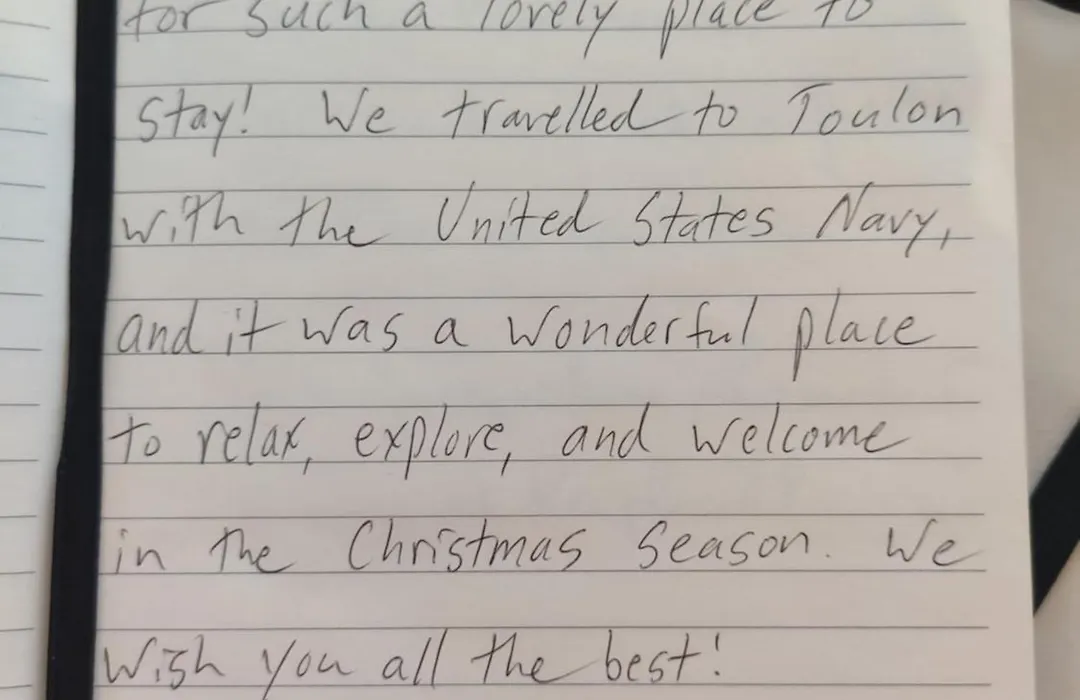 for such a lovely place to
stay! We travelled to Toulon
with the United States Navy,
and it was a wonderful place
to relax, explore, and welcome
in the Christmas season. We
wish you all the best!